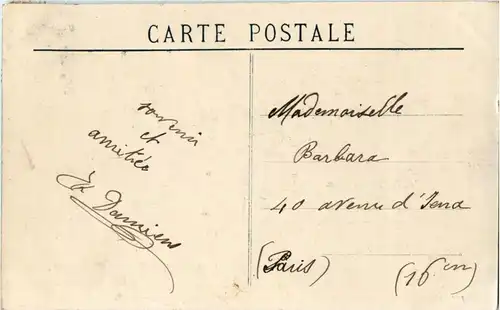 CARTE POSTALE
souvenir
et
amitiés
Damiens
Mademoiselle
Barbara
40 avenue d'Iena
(Paris) (16em)